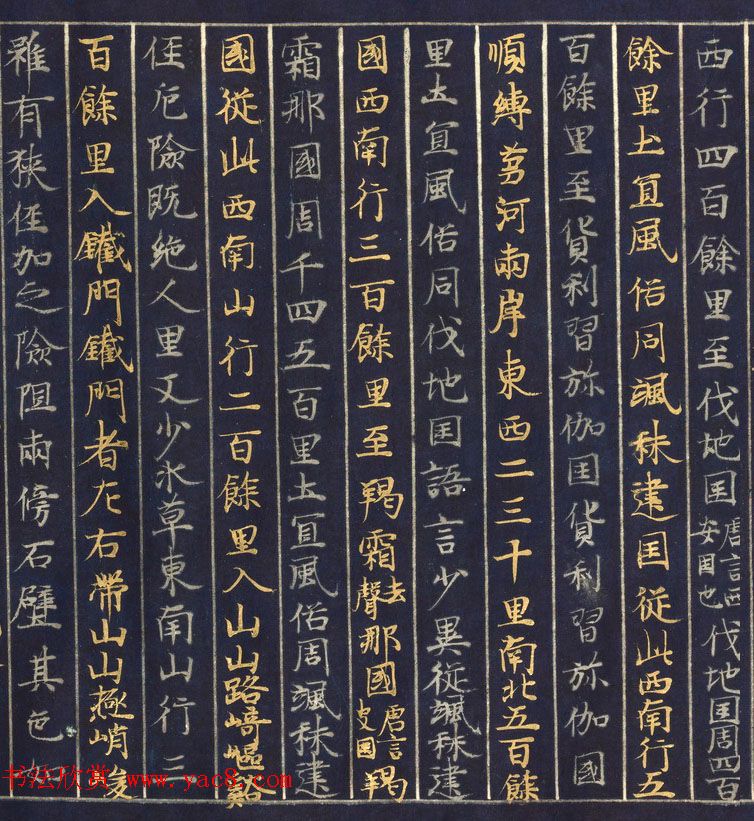 西行四百餘里至伐地国唐言西安国也伐地国周四百
餘里土宜風俗同颯秣建国從此西南行五
百餘里至貨利習弥伽国貨利習弥伽國
順縛芻河兩岸東西二三十里南北五百餘
里土宜風俗同伐地国語言少異從颯秣建
國西南行三百餘里至羯霜去聲那國唐言史國羯
霜那國周千四五百里土宜風俗同颯秣建
國從此西南山行二百餘里入山山路崎嶇谿
徑危險既絶人里又少水草東南山行三
百餘里入鐵門鐵門者左右帶山山極峭峻
雖有狹徑加之險阻兩傍石壁其色如
书法欣赏 www.yac8.com